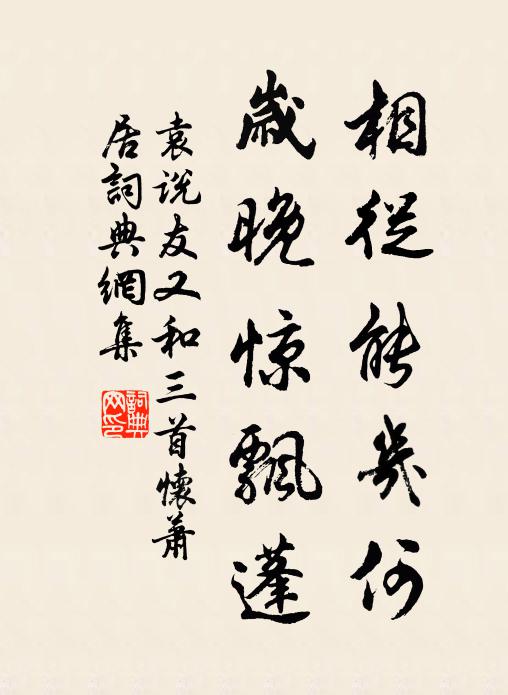 相從能幾何
歲晚惊飄蓬
袁说友又和三首懷蕭
居詞典網集
詞典
网印